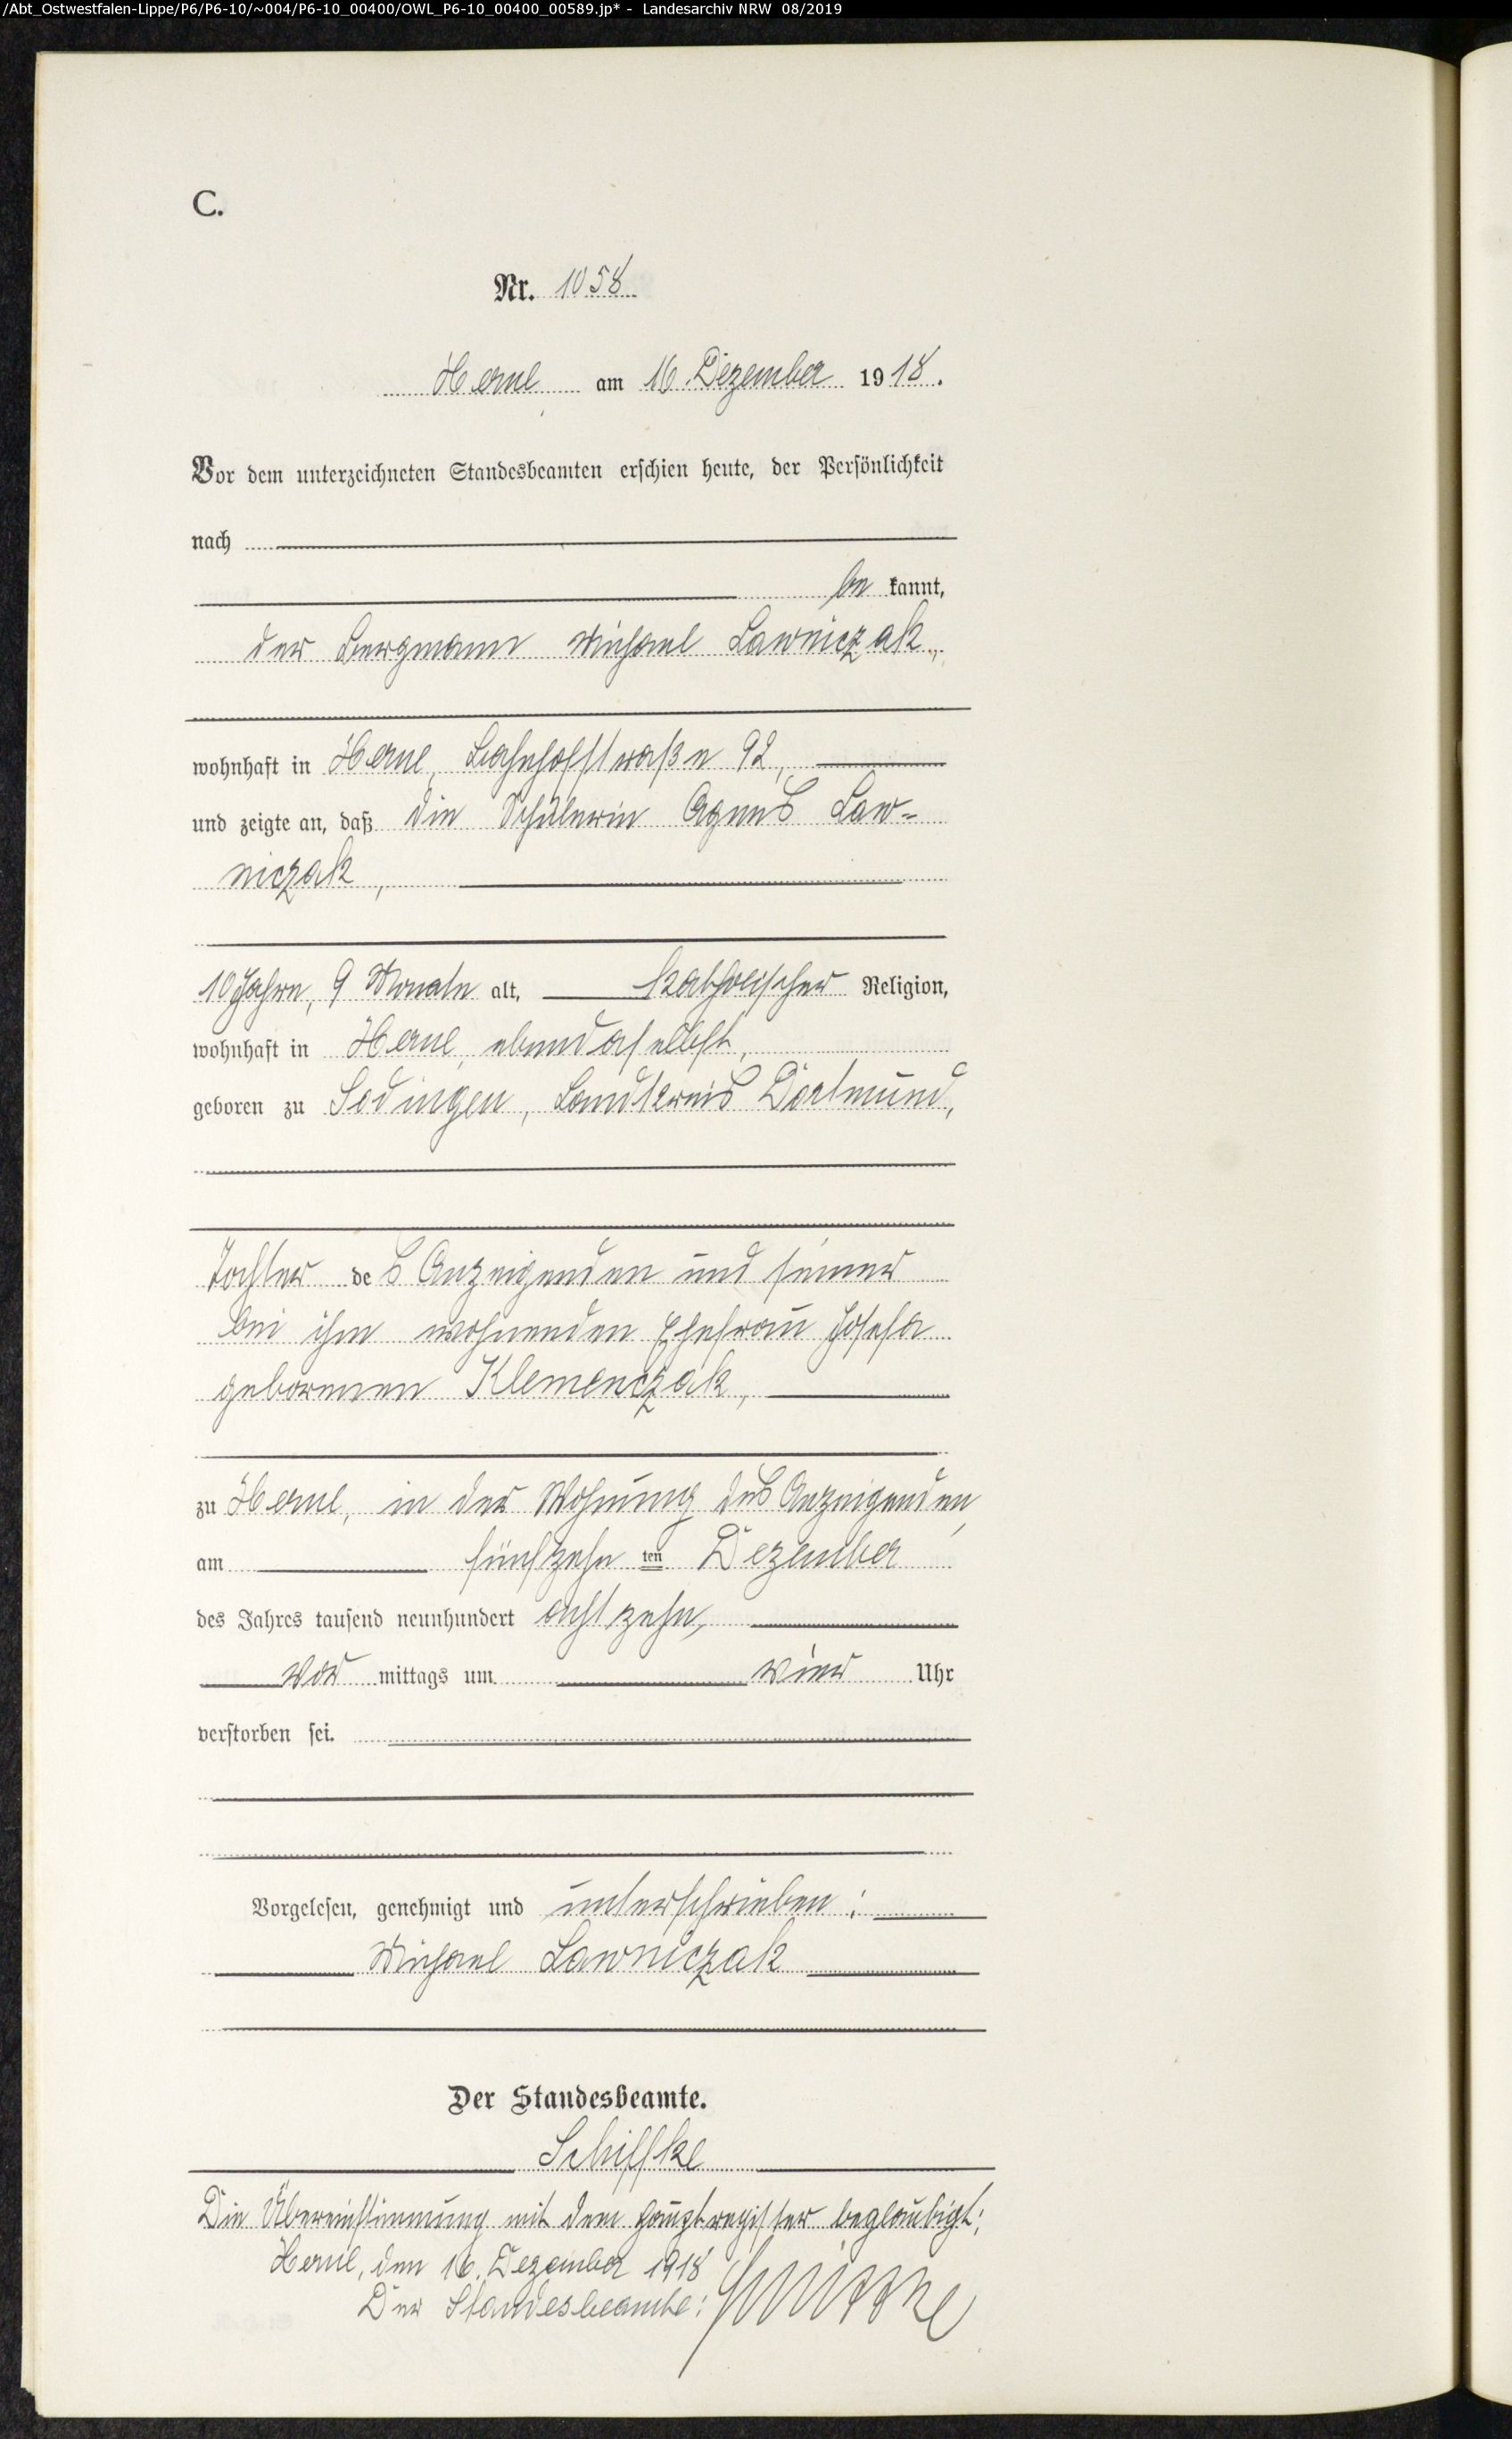 /Abt_Ostwestfalen-Lippe/P6/P6-10/~004/P6-10_00400/OWL_P6-10_00400_00589.jp* - Landesarchiv NRW 08/2019
C.
Nr. 1058
Herne am 16. Dezember 1918.
Vor dem unterzeichneten Standesbeamten erschien heute, der Persönlichkeit
nach
be kannt,
der Bergmann Michael Lawniczak,
wohnhaft in Herne, Bahnhofstraße 92,
und zeigte an, daß die Schülerin Agnes Law-
niczak,
10 Jahre, 9 Monate alt, katholischer Religion,
wohnhaft in Herne, ebendaselbst,
geboren zu Sodingen, Landkreis Dortmund,
Tochter des Anzeigenden und seiner
bei ihm wohnenden Ehefrau Josefa
geborenen Klemenczak,
zu Herne, in der Wohnung des Anzeigenden,
am fünfzehn ten Dezember
des Jahres tausend neunhundert achtzehn,
vor mittags um vier Uhr
verstorben sei.
Vorgelesen, genehmigt und unterschrieben:
Michael Lawniczak
Der Standesbeamte.
Schiffke
Die Übereinstimmung mit dem Hauptregister beglaubigt:
Herne, den 16. Dezember 1918
Der Standesbeamte: Schiffke